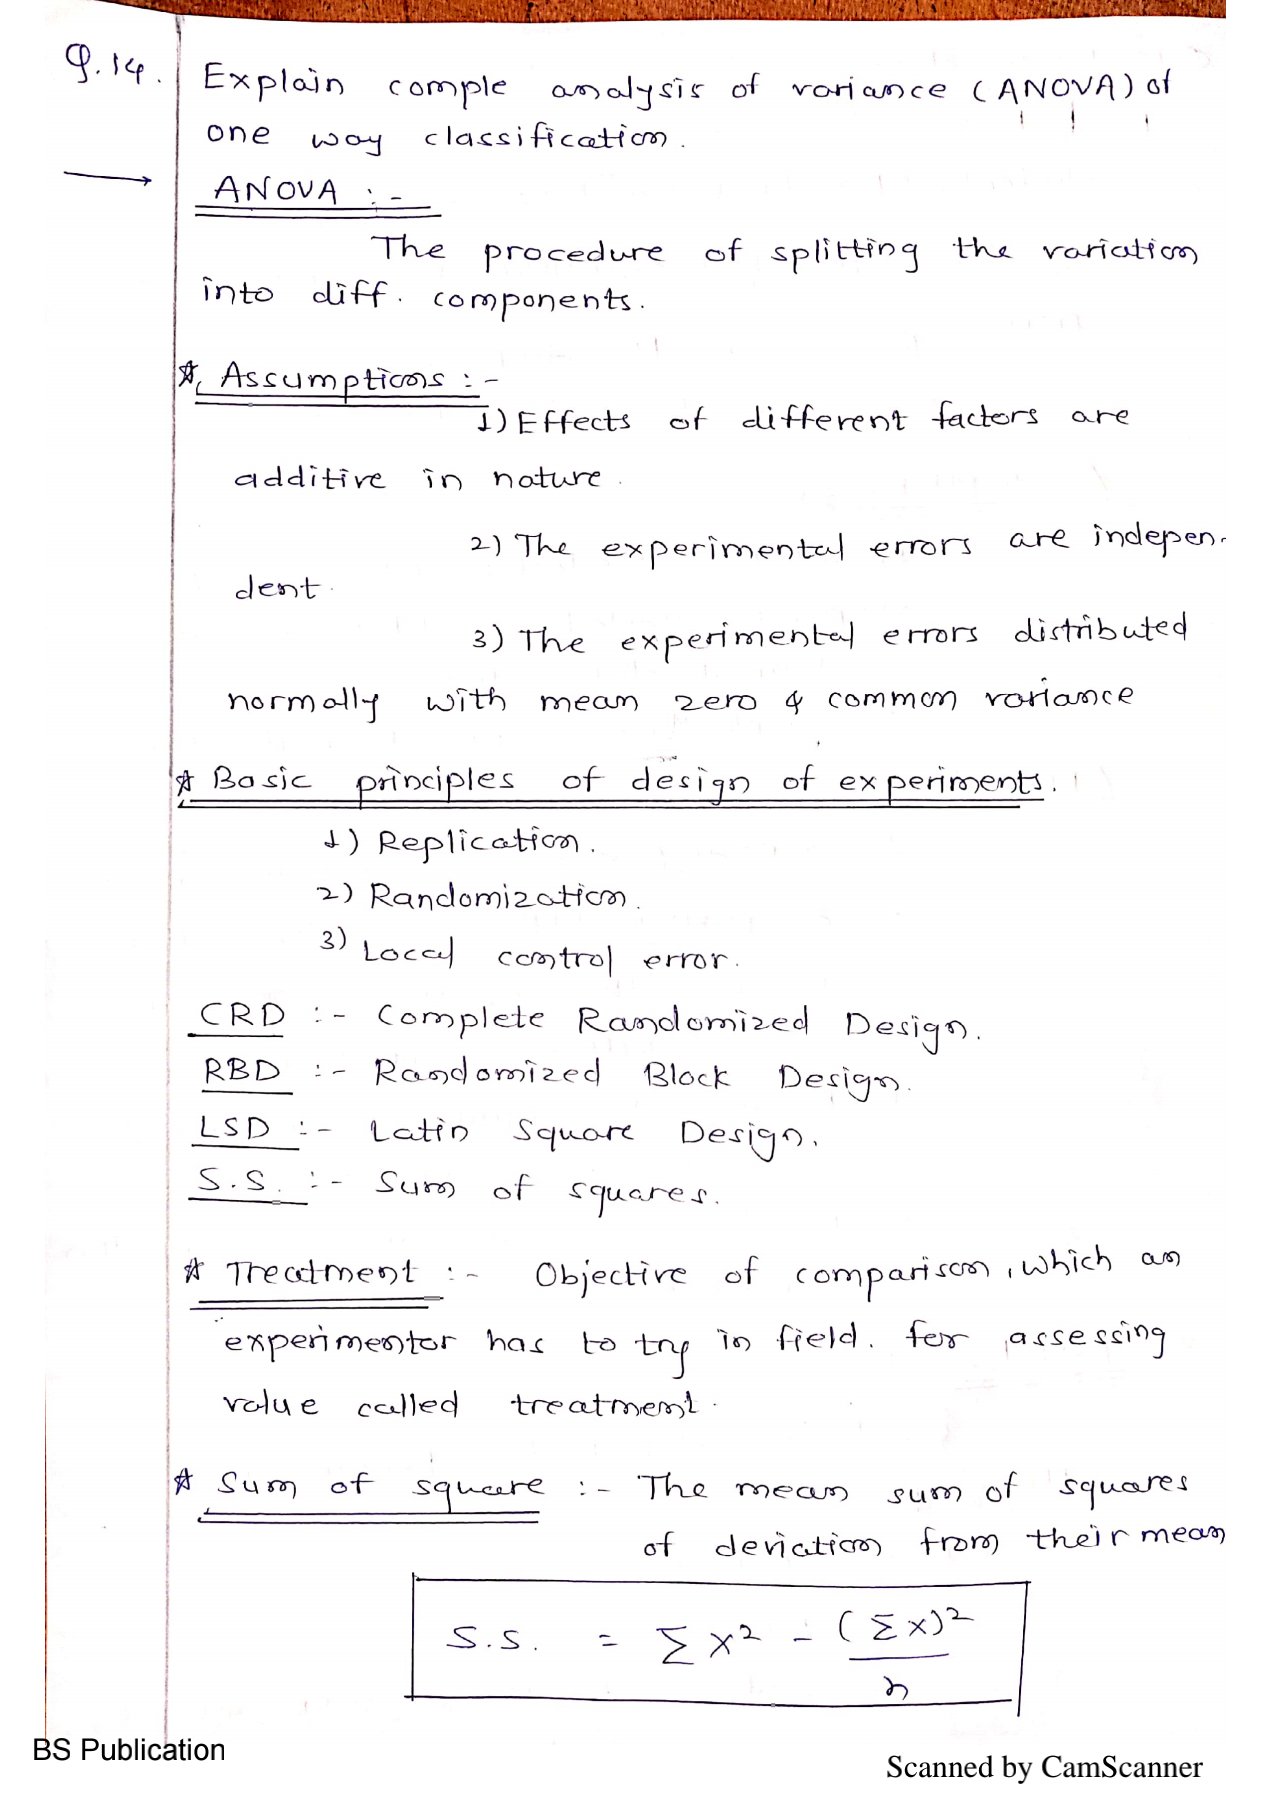 Q.14. Explain comple analysis of variance (ANOVA) of
one way classification.
ANOVA :-
The procedure of splitting the variation
into diff. components.
Assumptions :-
1) Effects of different factors are
additive in nature.
2) The experimental errors are indepen-
dent.
3) The experimental errors distributed
normally with mean zero & common variance
Basic principles of design of experiments.
1) Replication.
2) Randomization.
3) Local control error.
CRD :- Complete Randomized Design.
RBD :- Randomized Block Design.
LSD :- Latin Square Design.
S.S. :- Sum of squares.
Treatment :- Objective of comparison, which an
experimentor has to try in field. for assessing
value called treatment.
Sum of square :- The mean sum of squares
of deviation from their mean
S.S. = Σx² - (Σx)²/n
BS Publication
Scanned by CamScanner